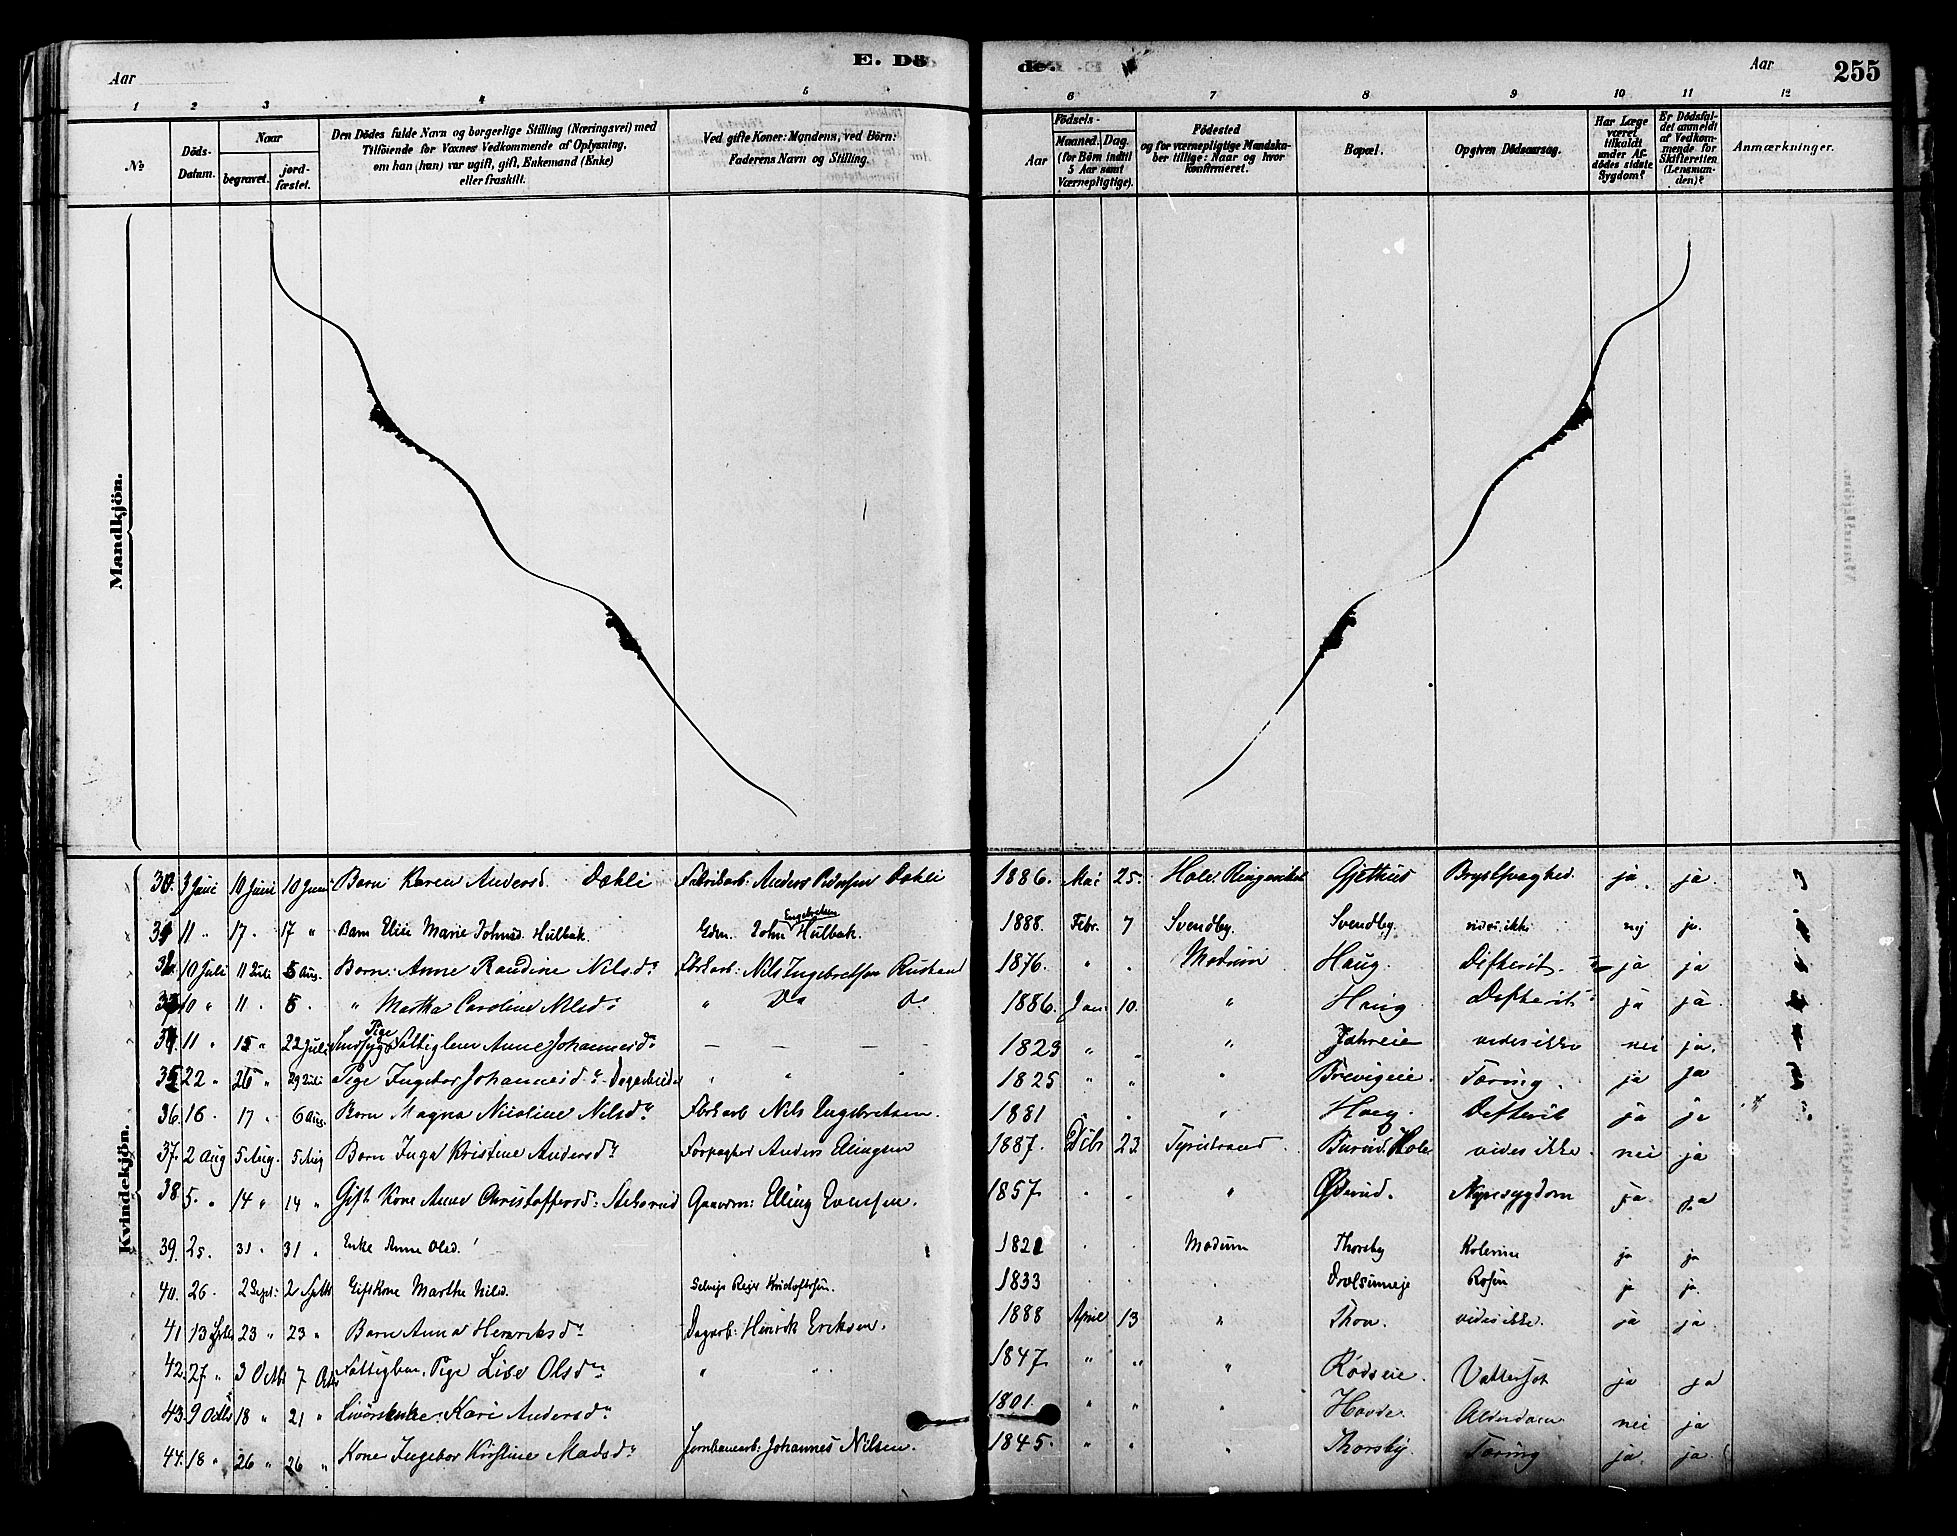 Aar
E. Dö
de.
Aar
255
1 2 3 4 5 6 7 8 9 10 11 12
№
Döds-Datum.
Naar
begravet.
jord-fæstet.
Den Dödes fulde Navn og borgerlige Stilling (Næringsvei) med
Tilföiende for Voxnes Vedkommende af Oplysning,
om han (hun) var ugift, gift, Enkemand (Enke)
eller fraskilt.
Ved gifte Koner: Mandens, ved Börn:
Faderens Navn og Stilling.
Födsels-
Aar
Maaned. Dag.
(for Börn indtil
5 Aar samt
Værnepligtige).
Födested
og for værnepligtige Mandska-
ber tillige: Naar og hvor
konfirmeret.
Bopæl.
Opgiven Dödsaarsag.
Har Læge
været
tilkaldt
under Af-
dödes sidste
Sygdom?
Er Dödsfal-
det anmeldt
af Vedkom-
mende for
Skifteretten
(Lensman-
den)?
Anmærkninger.
Mandkjön.
Kvindekjön.
30. 3 Juni 10 Juni 10 Juni Barn Karen Andersd. Dahli Fabrikarb. Anders Dahli 1886. Mai 25. Hole Ringerike Gjethus Brystsvaghed. ja. ja.
31 11 " 17. 17 " Barn Elise Marie Johnsd. Hulbak. Gdm. John Engebretsen Hulbak. 1888. Febr. 7 Svendby. Svendby. vides ikke nej ja.
32 10 Juli 11 Juli 5 Aug. Barn: Anne Randine Nilsd. Nils Ingebretsen 1876. " . Modum Haug. Defterit. ja ja
33 10 " 11 . 5. " Martha Caroline Nilsd. " Do Do 1886. Jan 10. " Haug Defterit ja ja.
34 11 " 15 " 22 Juli Pige Fattiglem Anne Johannesd. — — — — 1829 " " " vides ikke nei ja.
35 22 " 26 " 29 Juli Pige Ingebor Johannesd. " " " 1825 " " " Tæring. ja ja
36. 16. 17 . 6 Aug. Barn Magna Nicoline Nilsd. Nils Engebretsen. 1881 . " Haug. Defterit ja ja
37. 2 Aug 5 Aug. 5 Aug Barn Inga Kristine Andersd. Forpagter Anders Ellingsen 1887. Dcbr 23. Tyristrand. vides ikke. nei ja
38. 5. " 14 " 14 " Gift Kone Anne Christoffersd. Gaardm: Elling 1857 . . " Nyresygdom ja ja
39. 25. 31 " 31 " Enke Anne Olsd. 1821 . . Modum Thorsby Kolerine ja ja
40. 26. 2 Sept: 2 Septb Gift Kone Marthe Nilsd. Selveier Kristoffersen. 1833 . . . Rosen ja ja.
41 13 Septb 23 " 23 " Barn Anna Henriksd. Dagarb: Henrik Eriksen. 1888 April 13 " Thon. vides ikke. ja ja.
42. 27 " 3 Octbr 7 Octbr Fattiglem. Pige Lise Olsd. " " 1847 " " " Rødseie. Vattersot ja ja
43. 9 Octbr 18 " 21 " Kari Andersd. 1801. " " " Hovde. Alderdom nei ja
44. 18 " 26 " 26 " Kone Ingebor Kirstine Madsd. Jernbanearb: Johannes Nilsen. 1845. " " " Thorsby. Tæring ja. ja.